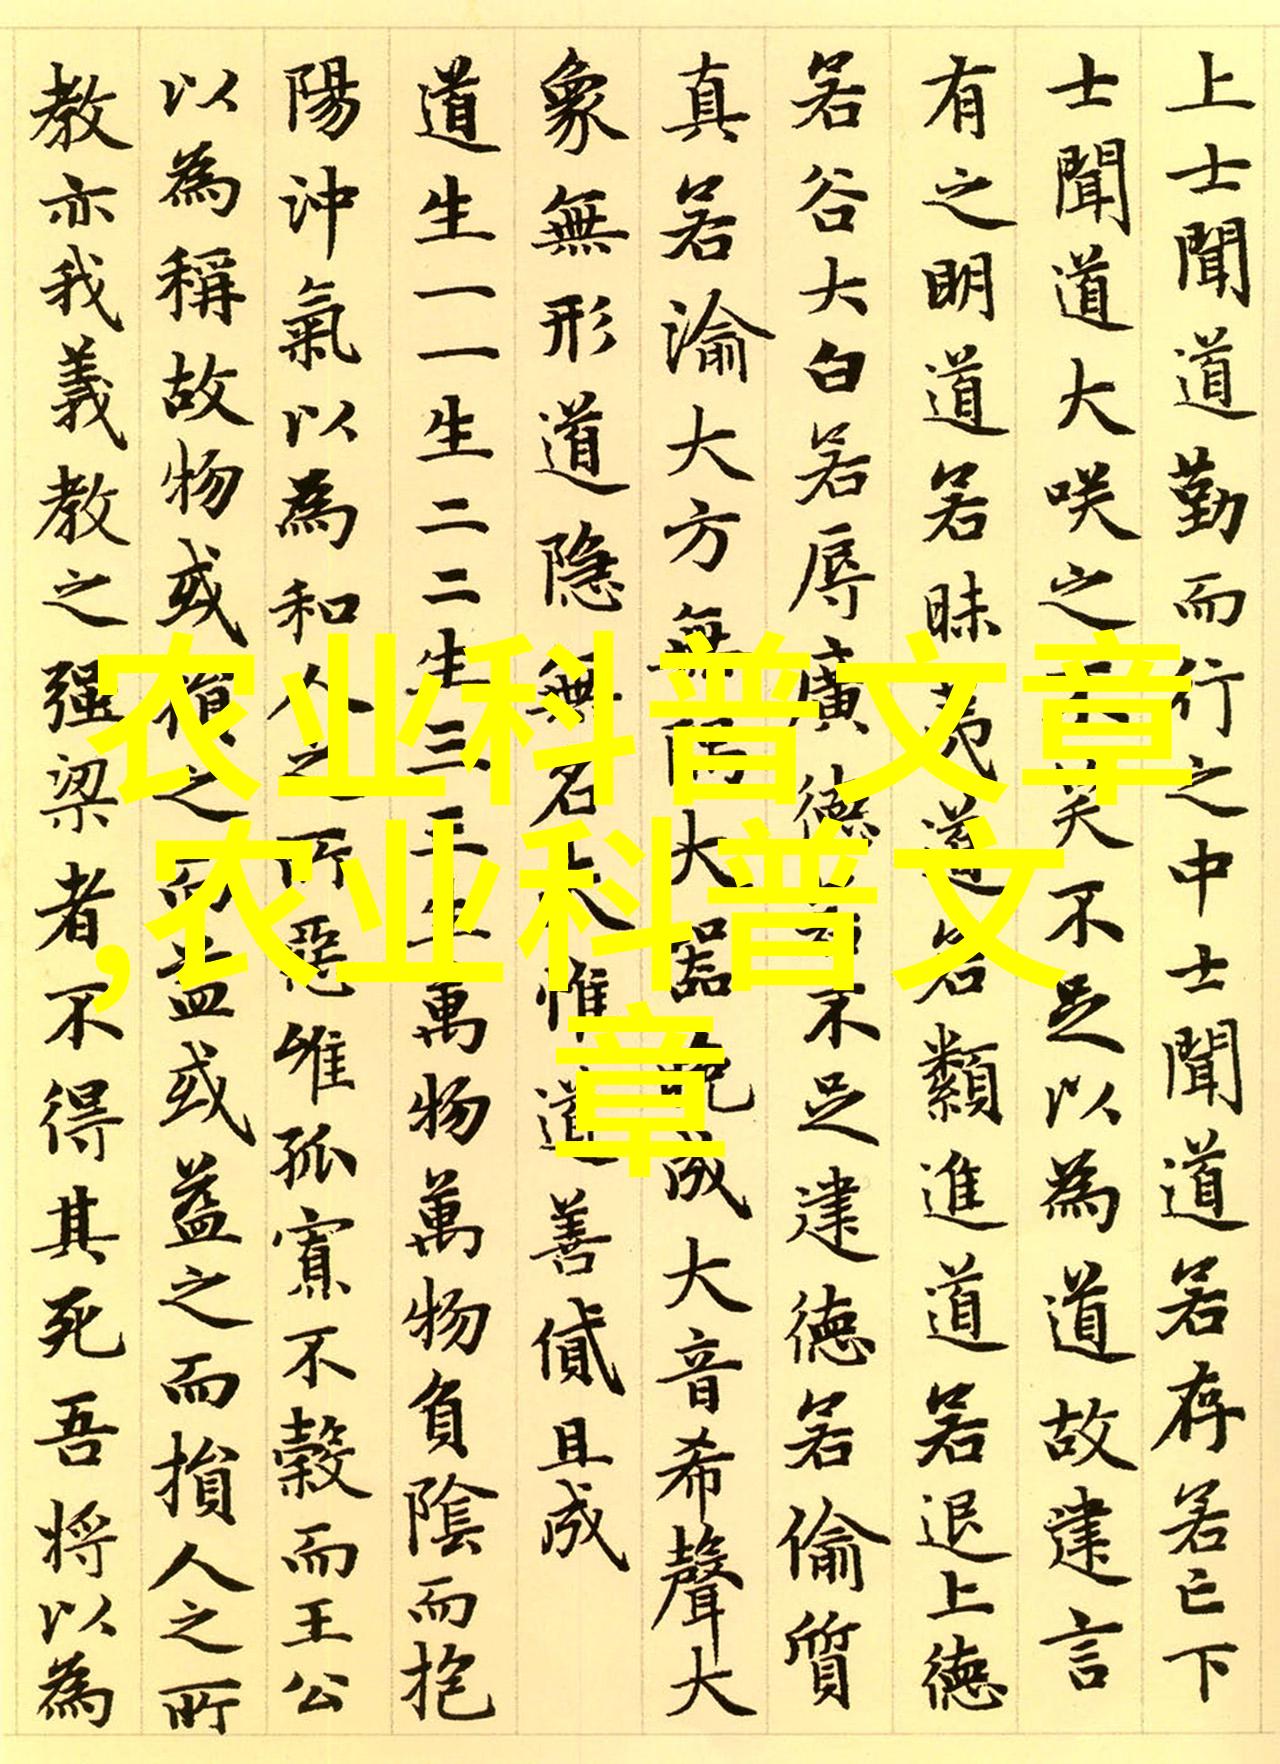 上士聞道勤而行之中士聞道若存若亡下
士聞道大咲之不笑不足以為道故建言
有之明道若昧夷道若纇進道若退上德
若谷大白若辱廣德若不足建德若偷質
真若渝大方無隅大器晚成大音希聲大
象無形道隱無名夫惟道善貸且成
道生一一生二二生三三生萬物萬物負陰而抱
陽沖氣以為和人之所惡惟孤寡不穀而王公
以為稱故物或損之而益或益之而損人之所
教亦我義教之强梁者不得其死吾将以為
农业科普文章
,农业科普文
章